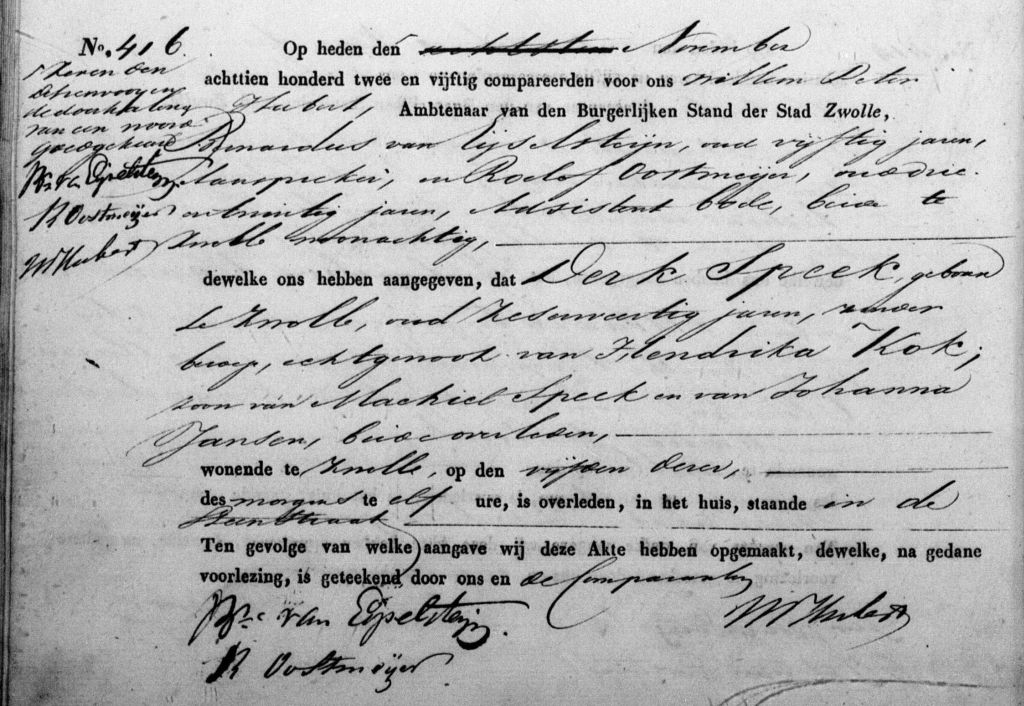 No. 416
zeven den
bijvoeging en
de doorhaling
van een woord
goedgekeurd
Bs van Eijselsteijn
R Oostmeijer
WP Hubert
Op heden den November
achttien honderd twee en vijftig compareerden voor ons Willem Peter
Hubert, Ambtenaar van den Burgerlijken Stand der Stad Zwolle,
Bernardus van Eijsselsteijn, oud vijftig jaren,
aanspreker, en Roelof Oostmeijer, oud drie
en twintig jaren, Adsistent bode, beide te
Zwolle woonachtig,
dewelke ons hebben aangegeven, dat Derk Speek, geboren
te Zwolle, oud zesenveertig jaren, zonder
beroep, echtgenoot van Hendrika Kok;
zoon van Machiel Speek en van Johanna
Jansen, beide overleden,
wonende te Zwolle, op den vijfden dezer,
des morgens te elf ure, is overleden, in het huis, staande in de
Steenstraat
Ten gevolge van welke aangave wij deze Akte hebben opgemaakt, dewelke, na gedane
voorlezing, is geteekend door ons en de Comparanten
WP Hubert
Bs van Eijselsteijn
R Oostmeijer